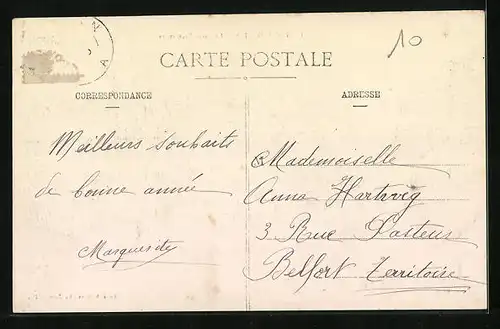 CARTE POSTALE
10
CORRESPONDANCE
ADRESSE
Meilleurs souhaits
de bonne année
Mademoiselle
Anna Hartweg
3 Rue Pasteur
Belfort Territoire